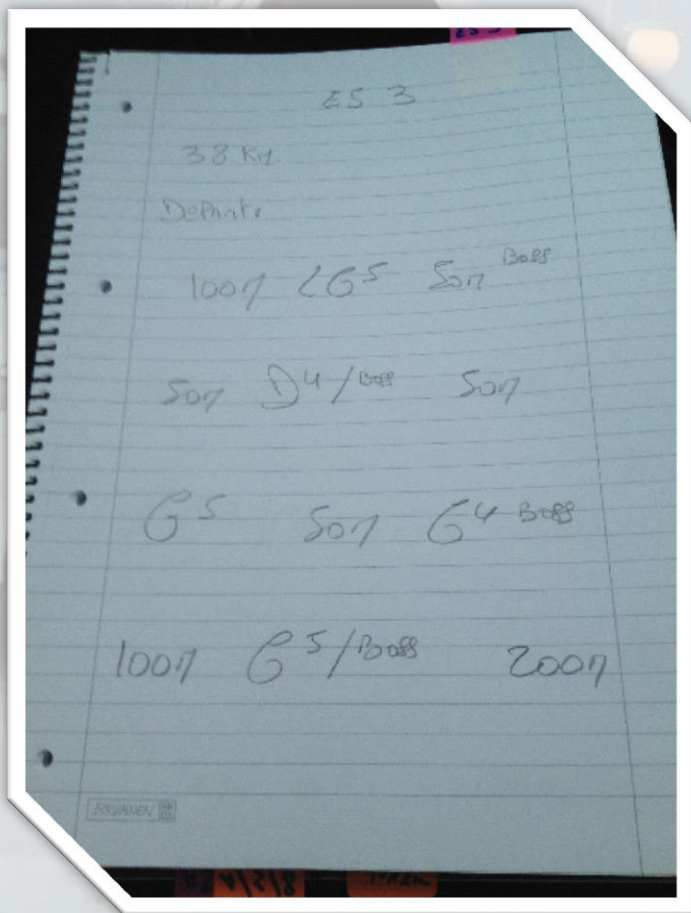 ES 3
ES 3
38 KM
Departe
100m LG5 50m Boss
50m D4/Boss 50m
G5 50m G4 Boss
100m G5/Boss 200m
BRUNNEN